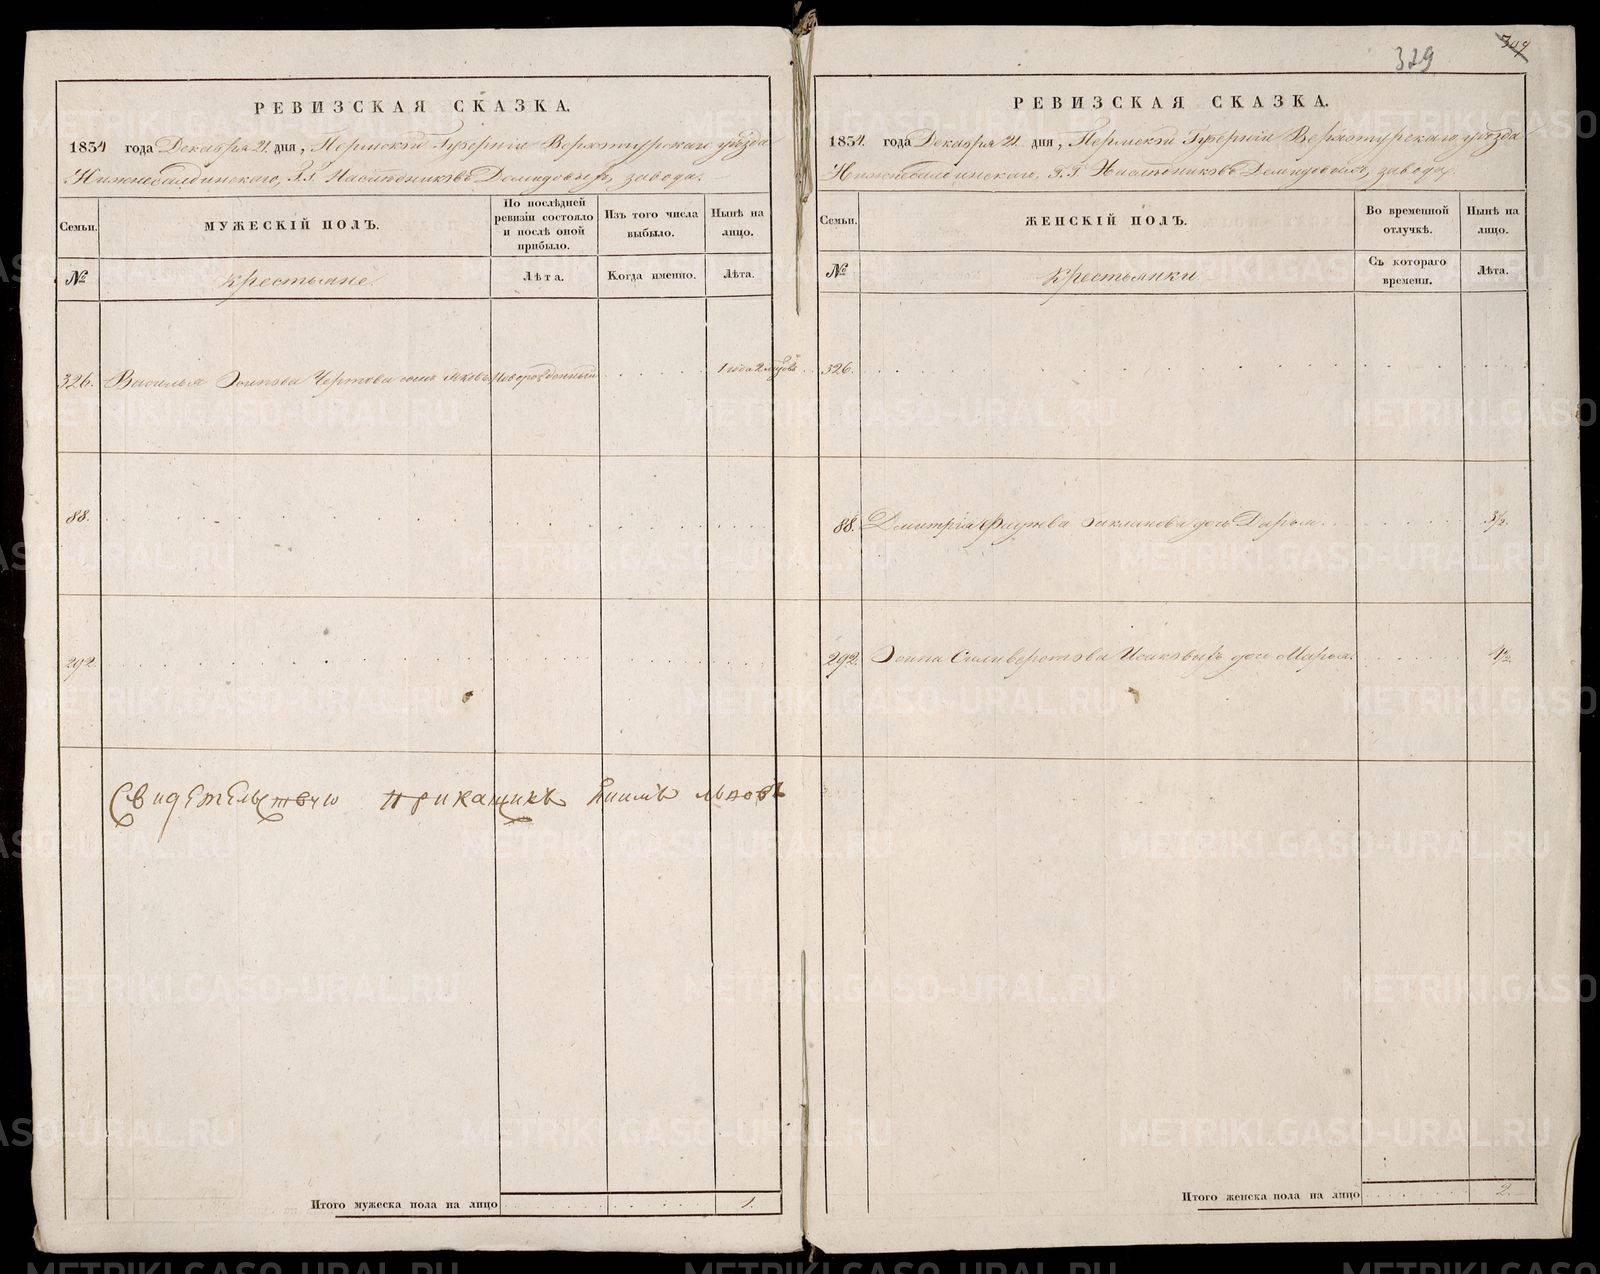 329
РЕВИЗСКАЯ СКАЗКА.
1834 года Декабря 21 дня, Пермской Губернии Верхотурскаго уѣзда
Нижнесалдинскаго, Г.Г. Наслѣдниковъ Демидовыхъ, завода.
Семьи.
МУЖЕСКІЙ ПОЛЪ.
По послѣдней ревизіи состояло и послѣ оной прибыло.
Изъ того числа выбыло.
Нынѣ на лицо.
№
Крестьяне.
Лѣта.
Когда именно.
Лѣта.
326. Василья Осипова Чертова сынъ Яковъ Новорожденный 1 года 2 мѣсяцовъ
88.
292.
Свидетельствую прикащикъ
Итого мужеска пола на лицо 1.
РЕВИЗСКАЯ СКАЗКА.
1834. года Декабря 21 дня, Пермской Губернии Верхотурскаго уѣзда
Нижнесалдинскаго, Г.Г. Наслѣдниковъ Демидовыхъ, завода.
Семьи.
ЖЕНСКІЙ ПОЛЪ.
Во временной отлучкѣ.
Нынѣ на лицо.
№
Крестьянки
Съ котораго времени.
Лѣта.
326.
88. Дмитрія дочь Дарья. 3½.
292. Осипа Селиверстова Исаковыхъ дочь Марья. 1½
Итого женска пола на лицо 2.
METRIKI.GASO-URAL.RU